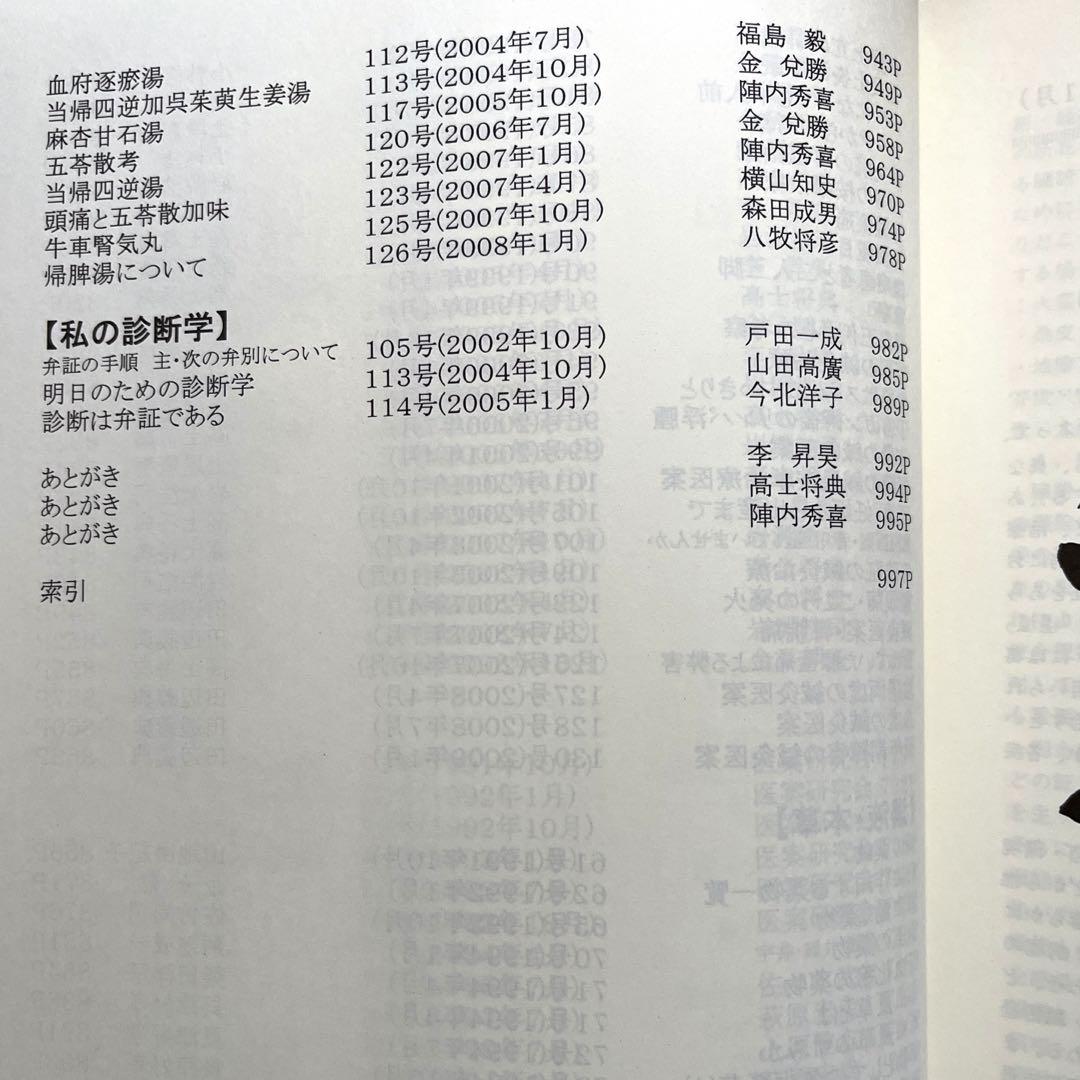 血府逐瘀湯 112号(2004年7月) 福島 毅 943P
当帰四逆加呉茱萸生姜湯 113号(2004年10月) 金 兌勝 949P
麻杏甘石湯 117号(2005年10月) 陣内秀喜 953P
五苓散考 120号(2006年7月) 金 兌勝 958P
当帰四逆湯 122号(2007年1月) 陣内秀喜 964P
頭痛と五苓散加味 123号(2007年4月) 横山知史 970P
牛車腎気丸 125号(2007年10月) 森田成男 974P
帰脾湯について 126号(2008年1月) 八牧将彦 978P
【私の診断学】
弁証の手順 主・次の弁別について 105号(2002年10月) 戸田一成 982P
明日のための診断学 113号(2004年10月) 山田高廣 985P
診断は弁証である 114号(2005年1月) 今北洋子 989P
あとがき 李 昇昊 992P
あとがき 高士将典 994P
あとがき 陣内秀喜 995P
索引 997P